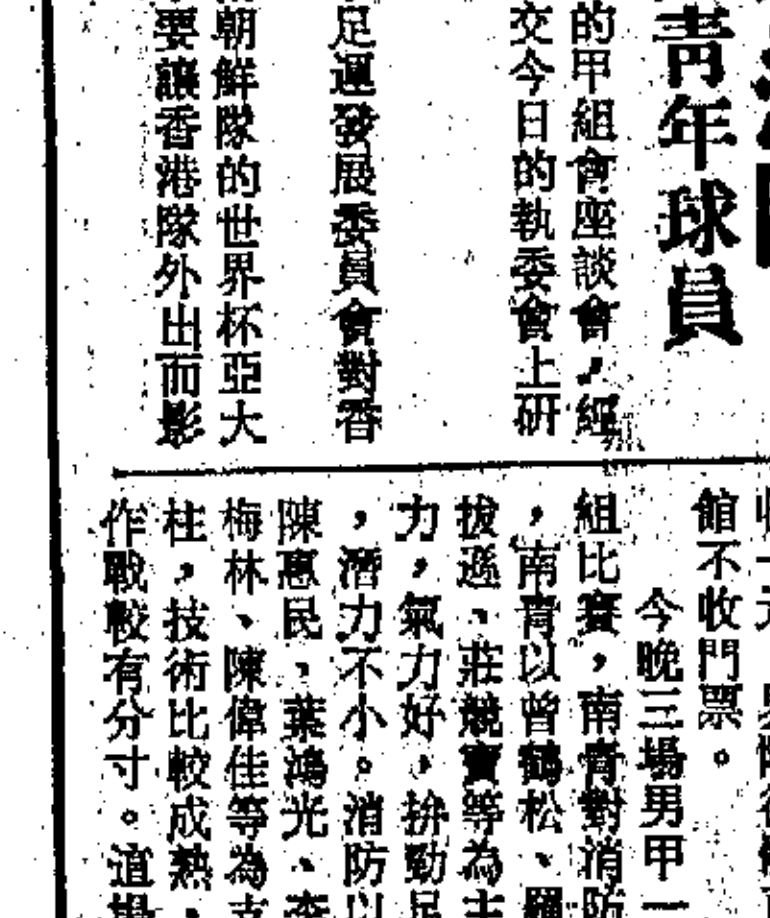 青年球員
的甲組會座談會，經
交今日的執委會上研
足運發展委員會對香
朝鮮隊的世界杯亞大
要讓香港隊外出而影
館不收門票。
今晚三場男甲一
組比賽，南青對消防
，南青以曾鶴松、羅
拔遜、莊競寶等為主
力，氣力好，拚勁足
，潛力不小。消防以
陳惠民、葉鴻光、李
梅林、陳偉佳等為支
柱，技術比較成熟，
作戰較有分寸。這場